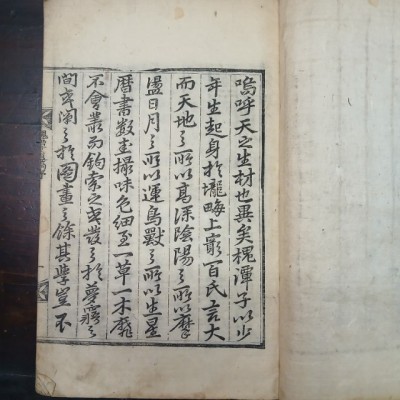 嗚呼天之生材也異矣槐潭子以少
年生起身於壠畝上窮百氏言大
而天地之所以高深陰陽之所以摩
盪日月之所以運鳥獸之所以生星
曆書數圭撮味色細至一草一木靡
不會叢而鉤索之或發之於夢寐之
間或之於圖畫之餘其學豈不